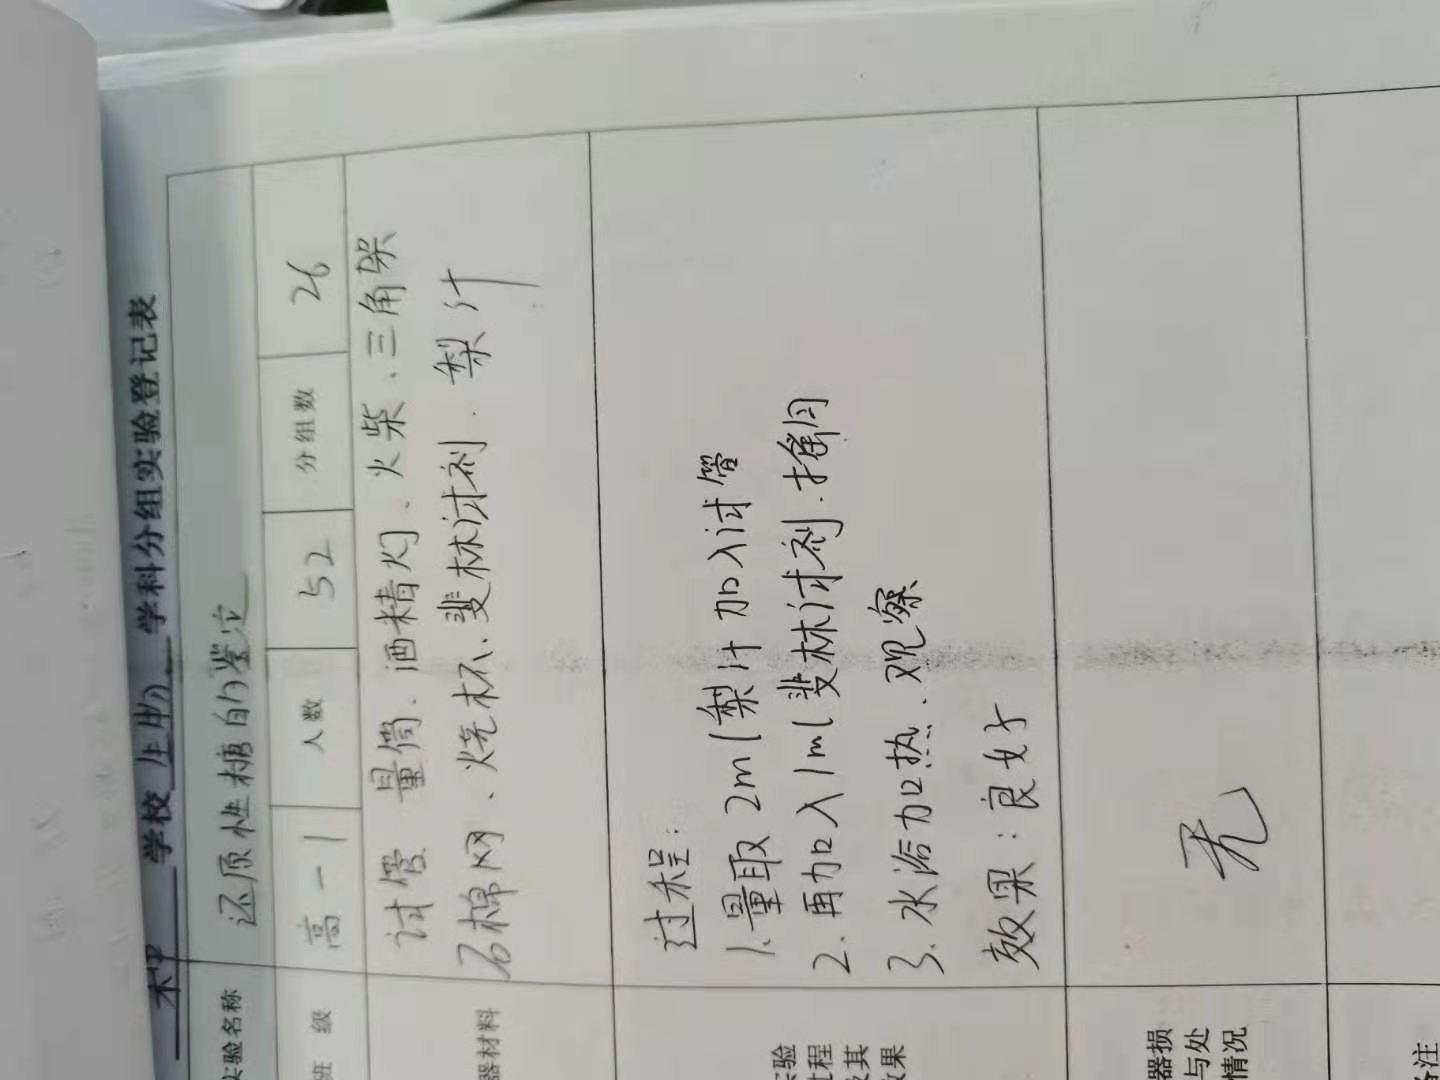 学校 生物 学科分组实验登记表
实验名称 还原性糖的鉴定
班 级 高一1 人数 52 分组数 26
器材料 试管 量筒、酒精灯、火柴、三角架
石棉网、烧杯、斐林试剂、梨汁
实验
过程
及其
效果
过程:
1.量取2ml梨汁加入试管
2.再加入1ml斐林试剂.摇匀
3.水浴加热.观察
效果:良好
器损
与处
情况
无
备注